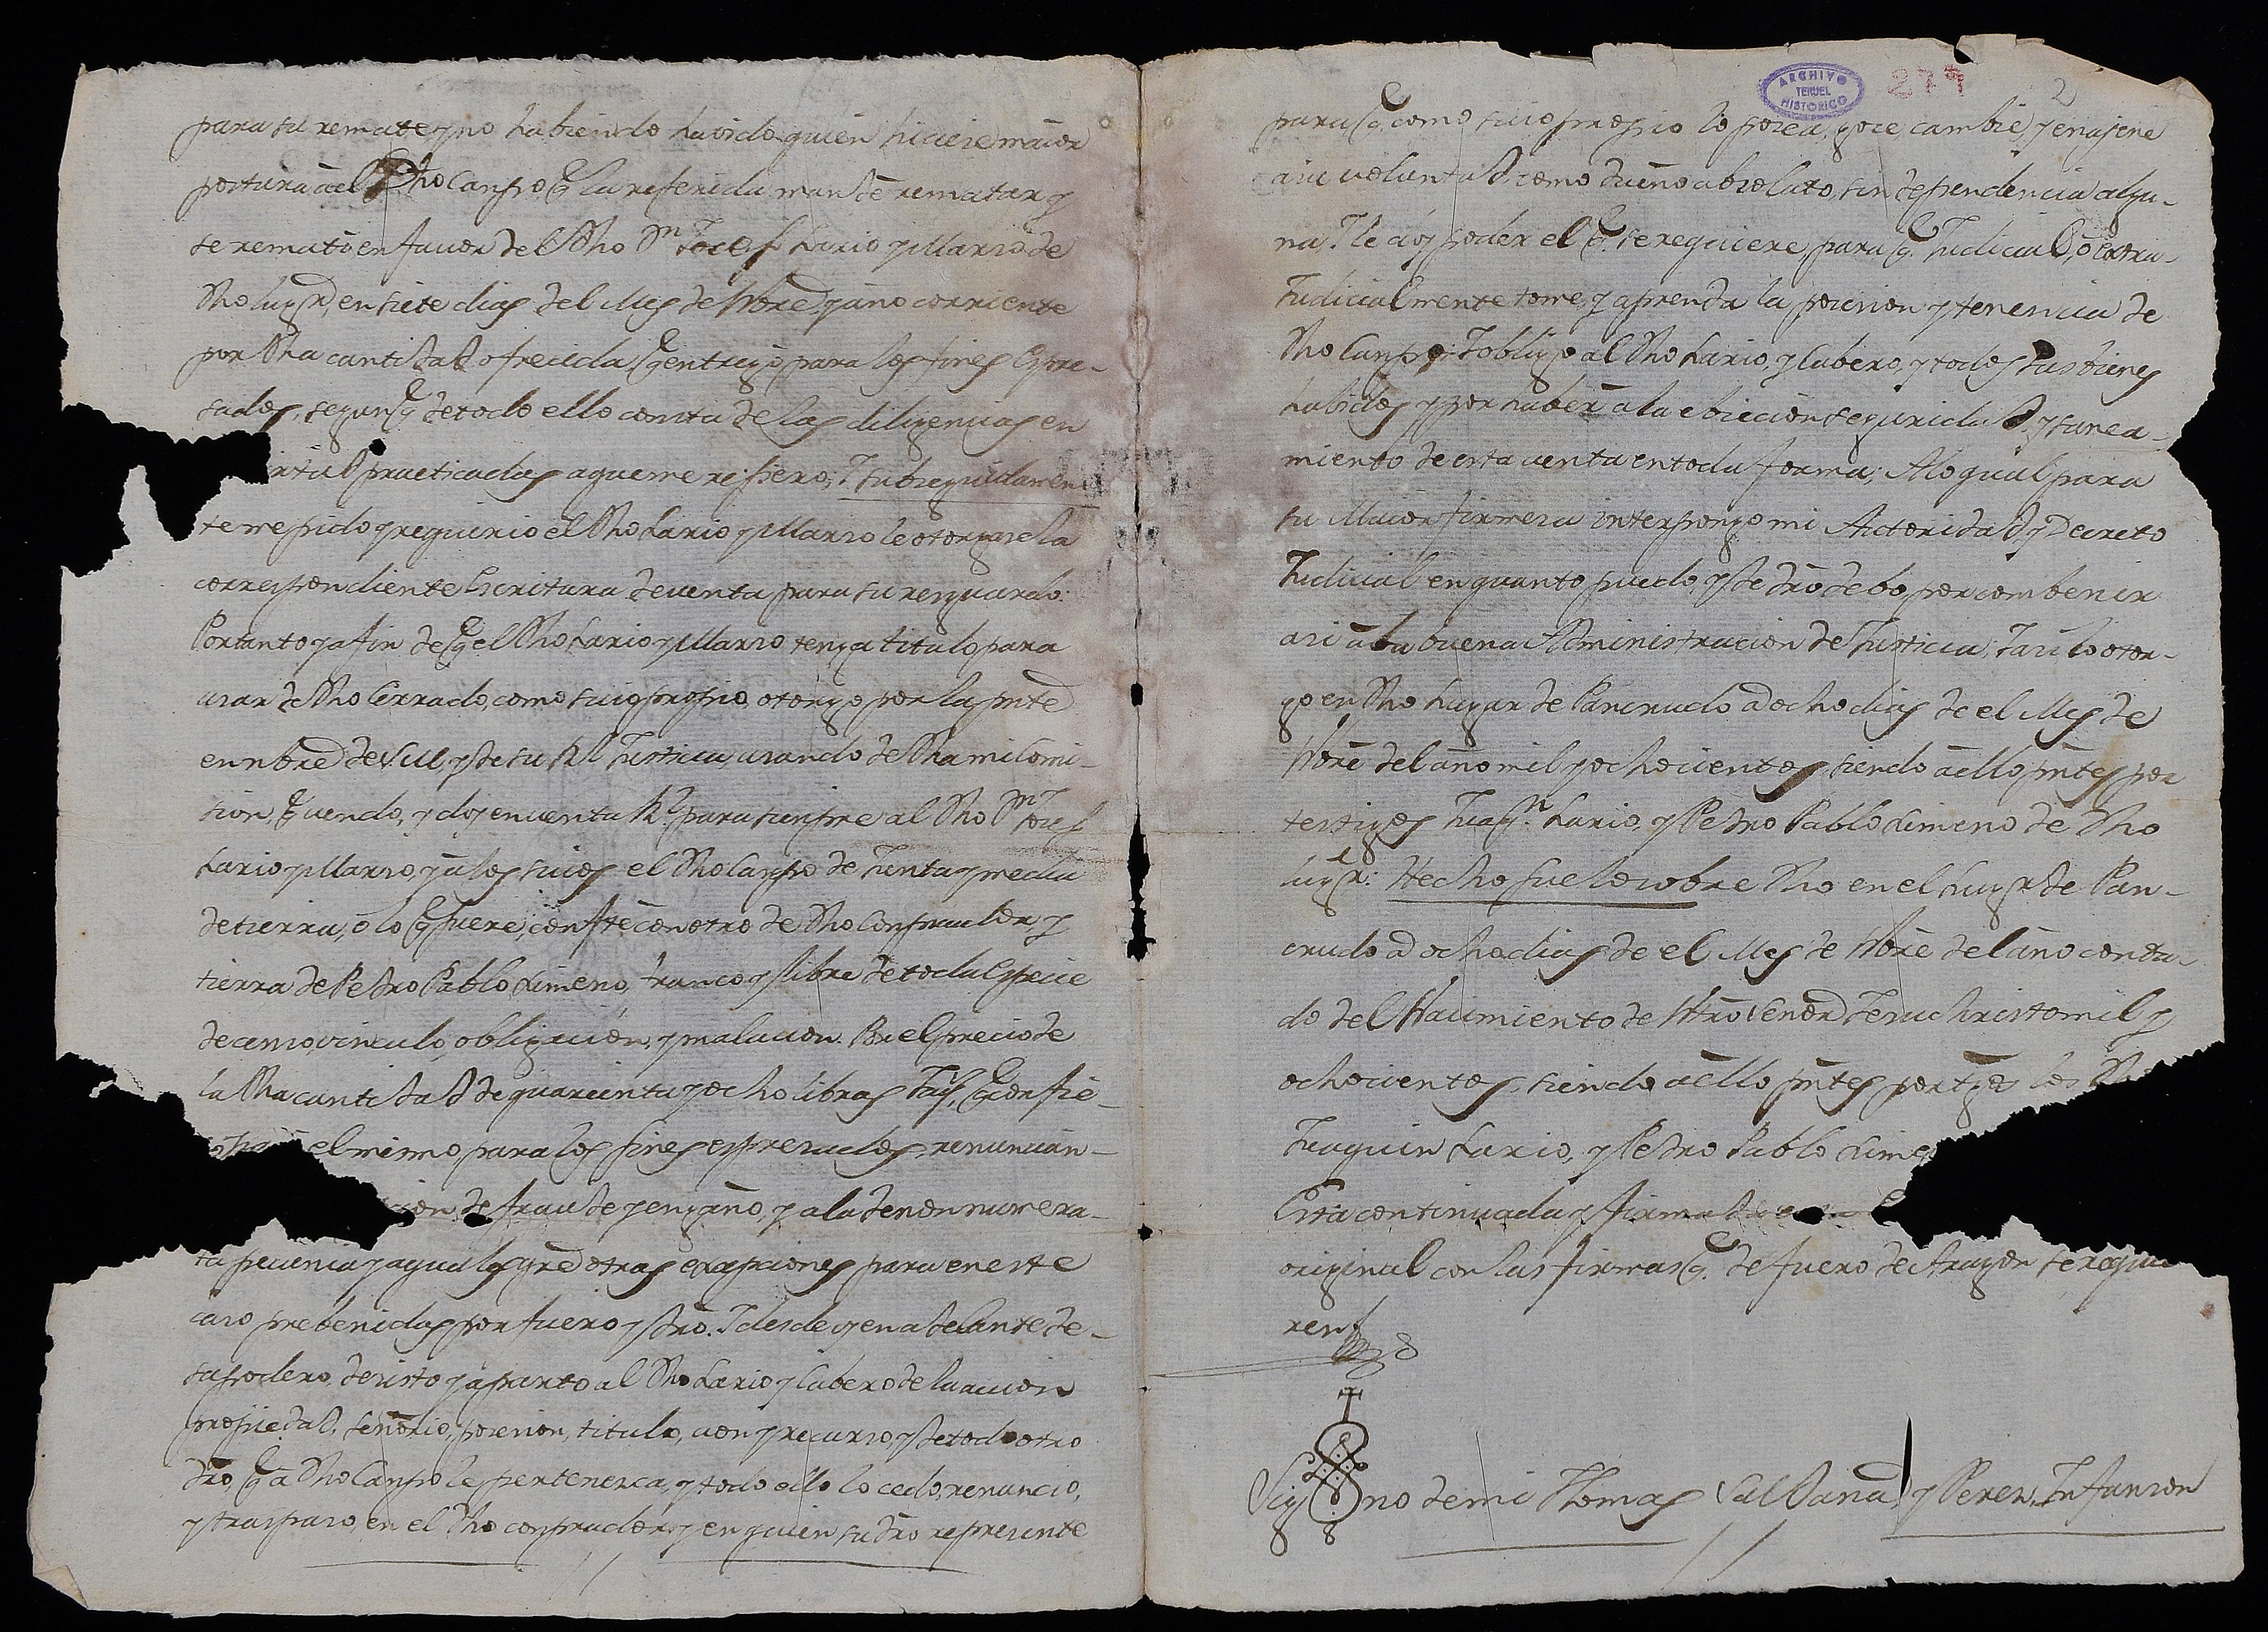 para su remate, y no habiendo havido quien hiciese maior
postura a el Dho Campo, q la referida mandé rematar, y
se remató en favor del Dho Dn Josef Lario y Marzo de
Dho lugar, en siete dias del Mes de Nbre y año corriente
por Dha cantidad ofrecida q entregó para los fines Expre-
sados, segun q de todo ello consta de las diligencias en
virtud practicadas a que me refiero; I subseguidamen
te me pidio y requirio el Dho Lario y Marzo le otorgase la
correspondiente Escritura de venta para su resguardo:
Portanto y a fin de q el Dho Lario y Marzo tenga titulo para
usar de Dho Cerrado, como suio propio, otorgo por la pnte
en nbre de S.M. y de su Rl Justicia, usando de Dha mi Comi-
sion, q vendo, y doy en venta Rl para siempre al Dho Dn Josef
Lario y Marzo, y a los suios el Dho Campo de Junta y media
de tierra, ó lo q fuere, confte con otro de Dho Comprador, y
tierra de Pedro Pablo Ximeno, franco y libre de toda Especie
de censo, vinculo, obligación, y mala voz. Por el precio de
la Dha cantidad de quarenta y ocho libras Jas, q confie-
el mismo, para los fines expresados, renuncian-
cion de fraude y engaño, y a la de non numera-
ta pecunia, y aqualesqre otras excepciones para en este
caso prebenidas por fuero y dro. I desde oy en adelante de-
sapodero, desisto y aparto al Dho Lario y Cabero de la accion
propiedad, señorio, posesion, titulo, voz y recurso, y de todo otro
dro, q a Dho Campo le pertenezca, y todo ello lo cedo, renuncio,
y traspaso, en el Dho comprador, y en quien su dro represente
ARCHIVO
TERUEL
HISTORICO
277
2
para q como suio propio lo posea, goce, cambie, y enajene
a su voluntad, como dueño absoluto, sin dependencia algu-
na. I le doy poder el q se requiere, para q Judicial, ó extra-
Judicialmente tome, y aprenda la posesion y tenencia de
Dho Campo; I obligo al Dho Lario, y Cabero, y todos sus bienes
habidos y por haber a la ebiccion seguridad, y sanea-
miento de esta venta en toda forma; A lo qual para
su Maior firmeza interpongo mi Autoridad, y Decreto
Judicial en quanto puedo, y de dro debo, por combenir
asi a la buena Administracion de Justicia; I asi lo otor-
go en Dho Lugar de Pancrudo a ocho dias de el Mes de
Nbre del año mil y ochocientos, siendo a ello pntes por
testigos Juaqn Lario, y Pedro Pablo Ximeno de Dho
lugar: Hecho fue lo sobre Dho en el Lugar de Pan-
crudo a ocho dias de el Mes de Nbre del año conta-
do del Nacimiento de Ntro Señor Jesuchristo mil y
ochocientos, siendo a ello pntes por tgos los Dhos
Juaquin Lario, y Pedro Pablo Xime
Está continuada y firmada
original con las firmas q de fuero de Aragon se requie
ren
Sig no de mi Thomas Saldaña y Perez, Infanzon